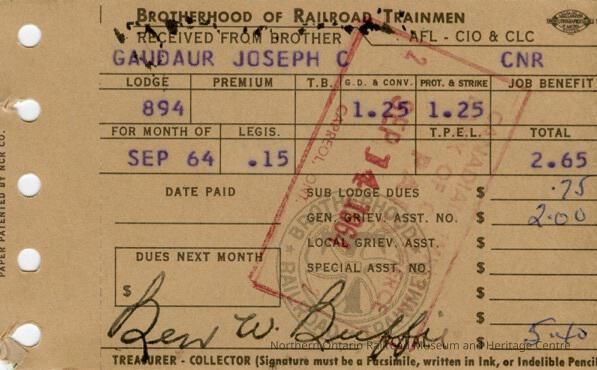 BROTHERHOOD OF RAILROAD TRAINMEN
RECEIVED FROM BROTHER AFL - CIO & CLC
GAUDAUR JOSEPH C CNR
LODGE PREMIUM T.B. G.D. & CONV. PROT. & STRIKE JOB BENEFIT
894 1.25 1.25
FOR MONTH OF LEGIS. T.P.E.L. TOTAL
SEP 64 .15 2.65
DATE PAID SUB LODGE DUES $ .75
GEN. GRIEV. ASST. NO. $ 2.00
LOCAL GRIEV. ASST. $
DUES NEXT MONTH SPECIAL ASST. NO. $
$ $
$ 5.40
Ben W.
TREASURER - COLLECTOR (Signature must be a Facsimile, written in Ink, or Indelible Pencil
PAPER PATENTED BY NCR CO.
SEP 14 1964
CAPREOL, ONT.
BROTHERHOOD
Northern Ontario Railroad Museum and Heritage Centre